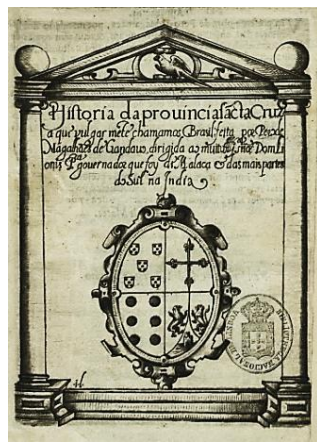 Historia da prouincia sãcta Cruz
a que vulgarmẽte chamamos Brasil feita por Pero de
Magalhães de Gandauo, dirigida ao muito Illsre snõr Dom Li
onis Pra gouernador que foy de Malaca & das mais partes
do Sul na India
LISBOA
NACIONAL